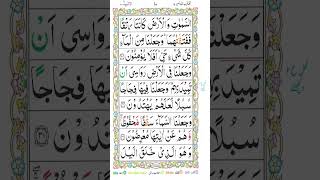 السَّمٰوٰتِ وَالْاَرْضَ كَانَتَا رَتْقًا
فَفَتَقْنٰهُمَا ؕ وَجَعَلْنَا مِنَ الْمَآءِ
كُلَّ شَیْءٍ حَیٍّ ؕ اَفَلَا یُؤْمِنُوْنَ
وَجَعَلْنَا فِی الْاَرْضِ رَوَاسِیَ اَنْ
تَمِیْدَ بِهِمْ وَجَعَلْنَا فِیْهَا فِجَاجًا
سُبُلًا لَّعَلَّهُمْ یَهْتَدُوْنَ
وَجَعَلْنَا السَّمَآءَ سَقْفًا مَّحْفُوْظًا
وَّهُمْ عَنْ اٰیٰتِهَا مُعْرِضُوْنَ
وَهُوَ الَّذِیْ خَلَقَ الَّیْلَ